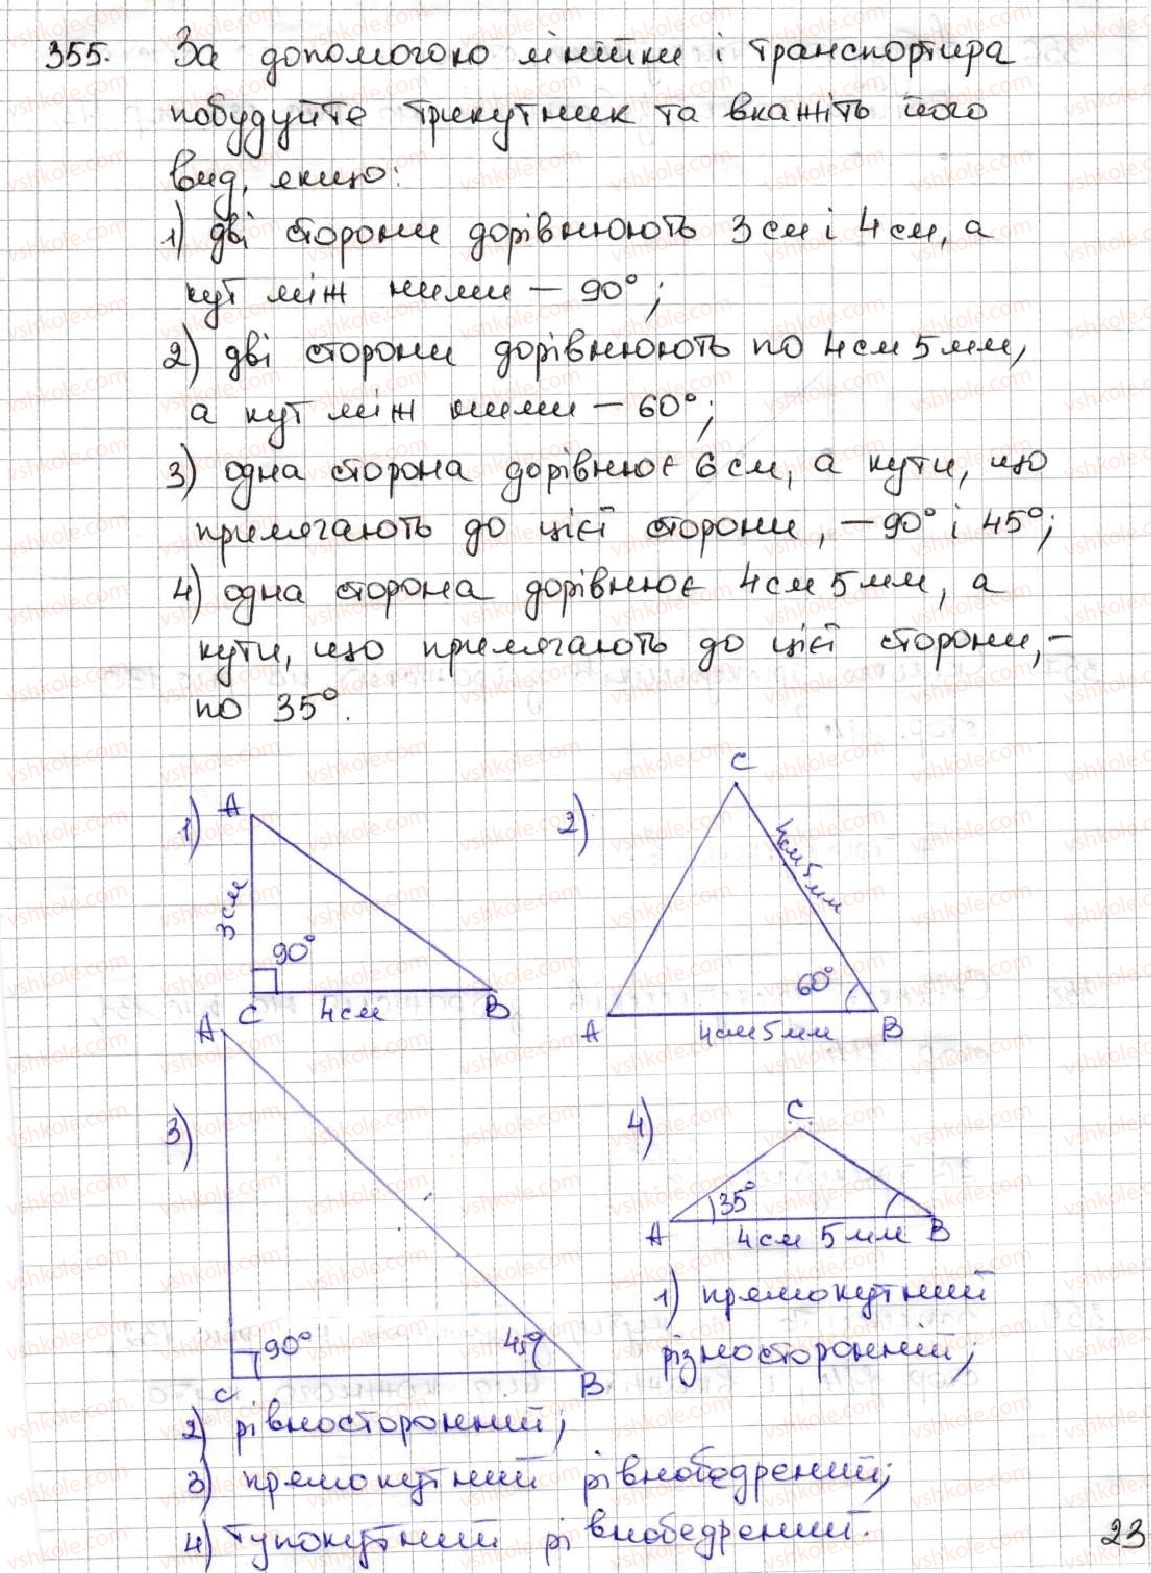 355. За допомогою лінійки і транспортира
побудуйте трикутник та вкажіть його
вид, якщо:
1) дві сторони дорівнюють 3 см і 4 см, а
кут між ними — 90°;
2) дві сторони дорівнюють по 4 см 5 мм,
а кут між ними — 60°;
3) одна сторона дорівнює 6 см, а кути, що
прилягають до цієї сторони, — 90° і 45°;
4) одна сторона дорівнює 4 см 5 мм, а
кути, що прилягають до цієї сторони, —
по 35°.
1) A
3 см
90°
C 4 см B
2)
C
4 см 5 мм
60°
A 4 см 5 мм B
3)
A
90° 45°
C B
4)
C
35°
A 4 см 5 мм B
1) прямокутний
різносторонній;
2) рівносторонний;
3) прямокутний рівнобедрений;
4) тупокутний рівнобедрений.
23
vshkole.com